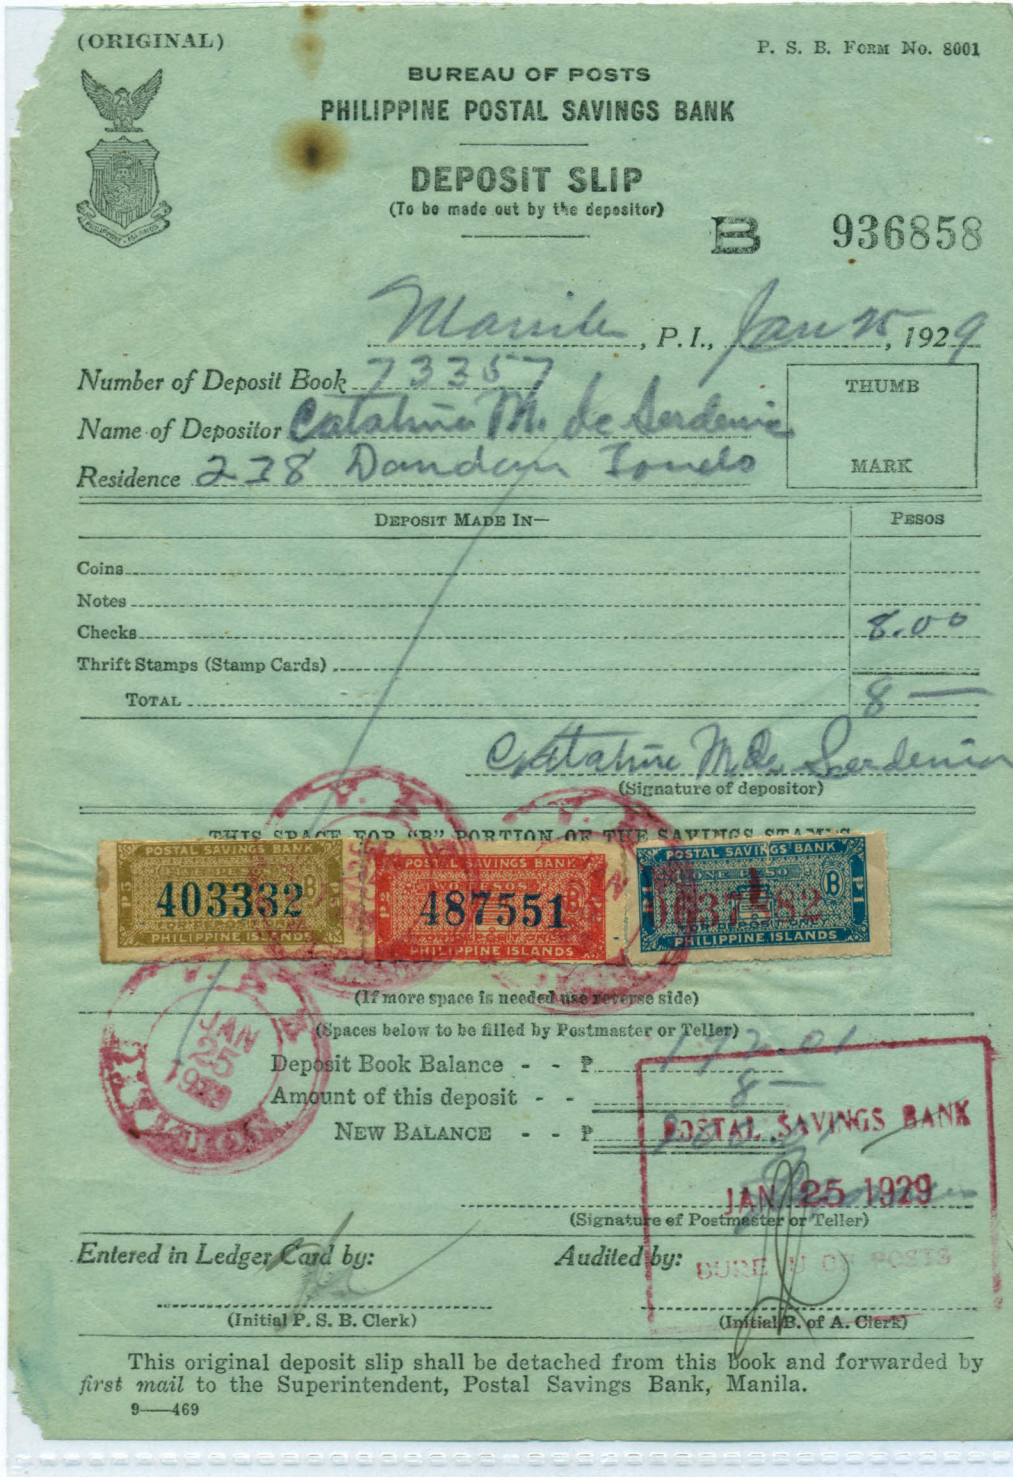 (ORIGINAL)
P. S. B. FORM No. 8001
BUREAU OF POSTS
PHILIPPINE POSTAL SAVINGS BANK
DEPOSIT SLIP
(To be made out by the depositor)
B 936858
Manila, P. I., Jan 25, 1929
Number of Deposit Book 73357
THUMB
Name of Depositor Catalina M. de Serdenia
Residence 238 Dandan Tondo
MARK
DEPOSIT MADE IN—
PESOS
Coins
Notes
Checks 8.00
Thrift Stamps (Stamp Cards)
TOTAL 8 —
Catalina M. de Serdenia
(Signature of depositor)
THIS SPACE FOR "B" PORTION OF THE SAVINGS STAMPS
POSTAL SAVINGS BANK
P5 403332 B P5
PHILIPPINE ISLANDS
POSTAL SAVINGS BANK
TWO PESOS
P2 487551
PHILIPPINE ISLANDS
POSTAL SAVINGS BANK
ONE PESO
P1 B P1
PHILIPPINE ISLANDS
(If more space is needed use reverse side)
(Spaces below to be filled by Postmaster or Teller)
JAN
25
1929
Deposit Book Balance - - ₱ 192.01
Amount of this deposit - - 8 —
NEW BALANCE - - ₱
POSTAL SAVINGS BANK
JAN 25 1929
BUREAU OF POSTS
(Signature of Postmaster or Teller)
Entered in Ledger Card by:
Audited by:
(Initial P. S. B. Clerk)
(Initial B. of A. Clerk)
This original deposit slip shall be detached from this book and forwarded by
first mail to the Superintendent, Postal Savings Bank, Manila.
9—469